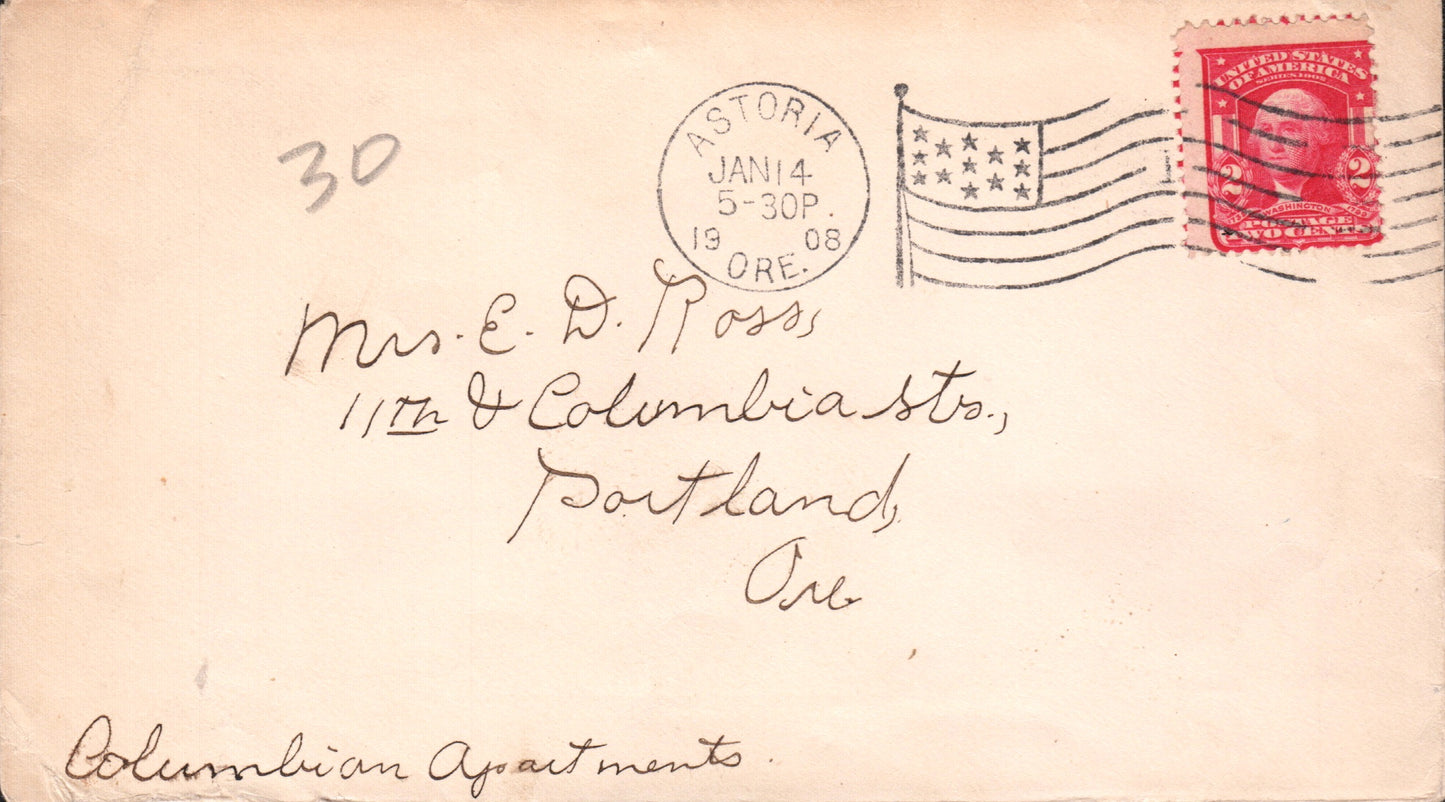 30
ASTORIA
JAN 14
5-30P.
1908
ORE.
1
UNITED STATES
OF AMERICA
SERIES 1902
2 2
WASHINGTON
POSTAGE
TWO CENTS
Mrs. E. D. Ross,
11th & Columbia Sts.,
Portland,
Ore.
Columbian Apartments.